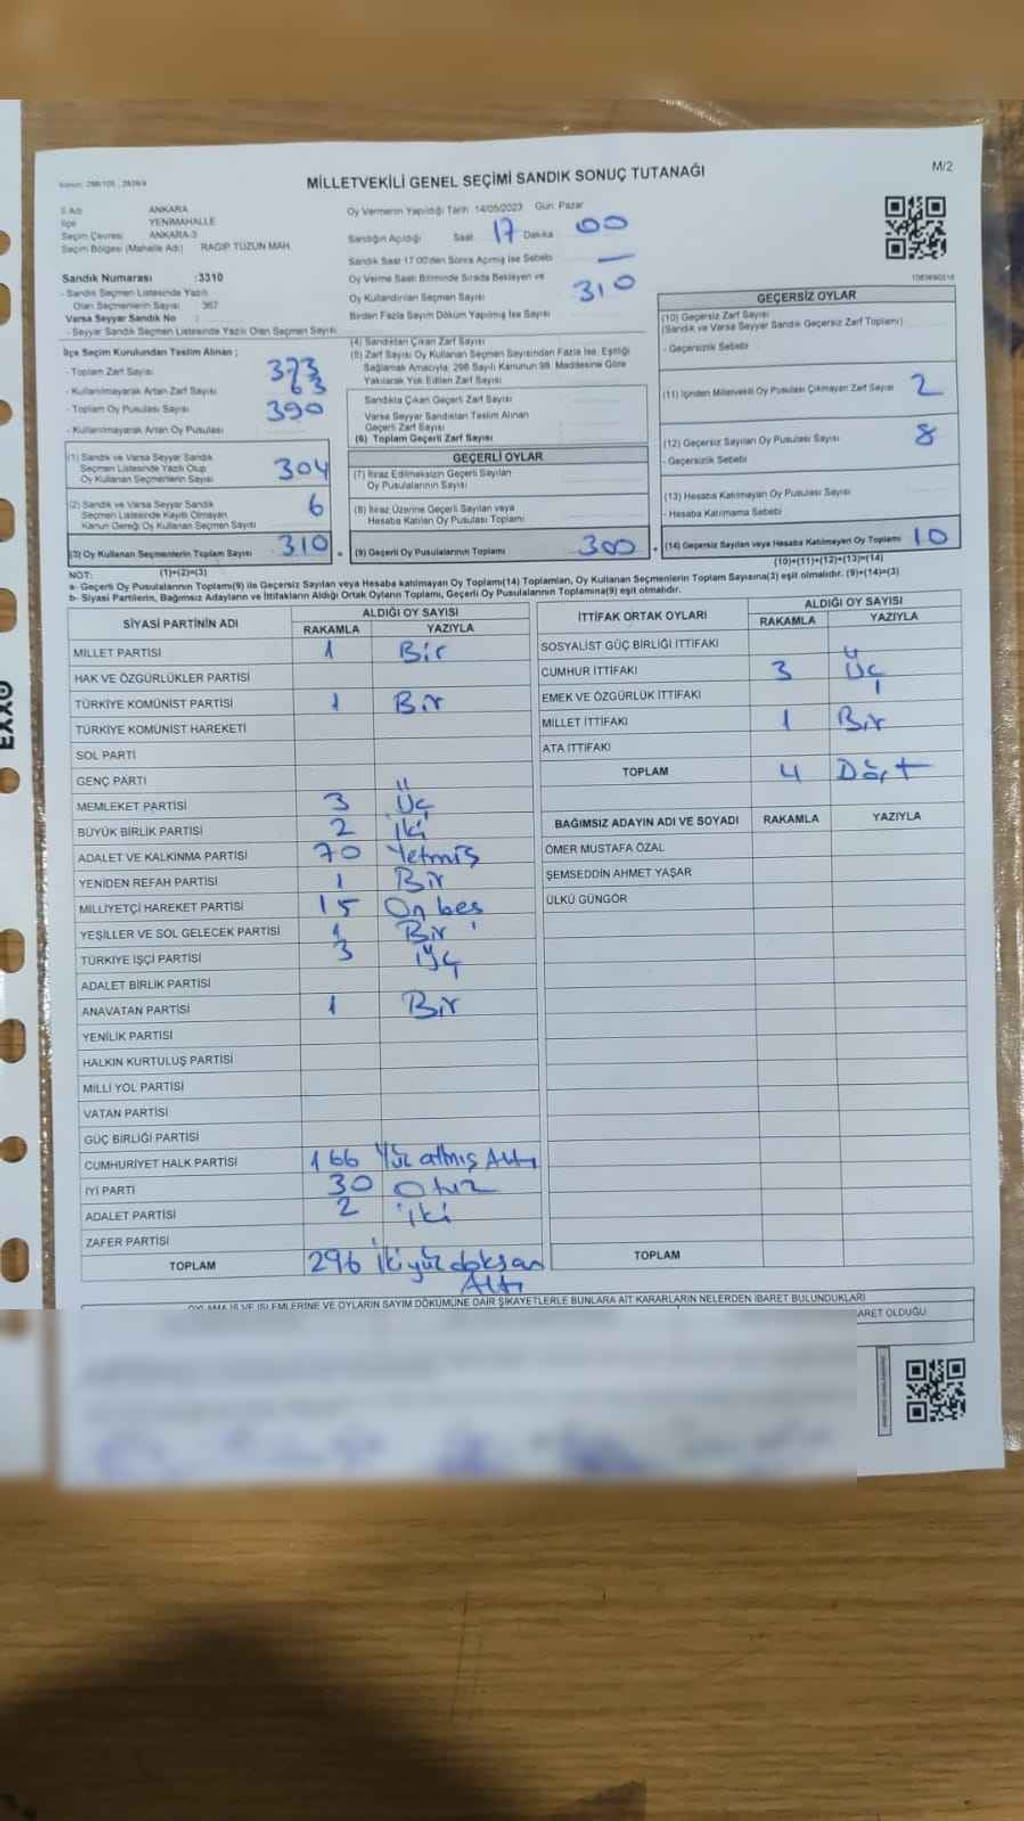 MİLLETVEKİLİ GENEL SEÇİMİ SANDIK SONUÇ TUTANAĞI
M/2
İl Adı ANKARA
İlçe YENİMAHALLE
Seçim Çevresi ANKARA-3
Seçim Bölgesi (Mahalle Adı) RAGIP TÜZÜN MAH.
Oy Vermenin Yapıldığı Tarih 14/05/2023 Gün: Pazar
Sandığın Açıldığı Saat 17 Dakika 00
Sandık Saat 17.00'den Sonra Açılmış İse Sebebi —
Oy Verme Saati Bitiminde Sırada Bekleyen ve
Oy Kullandırılan Seçmen Sayısı 310
Birden Fazla Sayım Döküm Yapılmış İse Sayısı
Sandık Numarası :3310
- Sandık Seçmen Listesinde Yazılı
Olan Seçmenlerin Sayısı 367
Varsa Seyyar Sandık No :
- Seyyar Sandık Seçmen Listesinde Yazılı Olan Seçmen Sayısı
İlçe Seçim Kurulundan Teslim Alınan ;
- Toplam Zarf Sayısı 373
- Kullanılmayarak Artan Zarf Sayısı 63
- Toplam Oy Pusulası Sayısı 390
- Kullanılmayarak Artan Oy Pusulası
(1) Sandık ve Varsa Seyyar Sandık
Seçmen Listesinde Yazılı Olup
Oy Kullanan Seçmenlerin Sayısı 304
(2) Sandık ve Varsa Seyyar Sandık
Seçmen Listesinde Kayıtlı Olmayan
Kanun Gereği Oy Kullanan Seçmen Sayısı 6
(3) Oy Kullanan Seçmenlerin Toplam Sayısı 310
(4) Sandıktan Çıkan Zarf Sayısı
(5) Zarf Sayısı Oy Kullanan Seçmen Sayısından Fazla İse, Eşitliği
Sağlamak Amacıyla, 298 Sayılı Kanunun 98. Maddesine Göre
Yakılarak Yok Edilen Zarf Sayısı
Sandıkta Çıkan Geçerli Zarf Sayısı
Varsa Seyyar Sandıktan Teslim Alınan
Geçerli Zarf Sayısı
(6) Toplam Geçerli Zarf Sayısı
GEÇERLİ OYLAR
(7) İtiraz Edilmeksizin Geçerli Sayılan
Oy Pusulalarının Sayısı
(8) İtiraz Üzerine Geçerli Sayılan veya
Hesaba Katılan Oy Pusulası Toplamı
(9) Geçerli Oy Pusulalarının Toplamı 300
GEÇERSİZ OYLAR
(10) Geçersiz Zarf Sayısı
(Sandık ve Varsa Seyyar Sandık Geçersiz Zarf Toplamı)
- Geçersizlik Sebebi
(11) İçinden Milletvekili Oy Pusulası Çıkmayan Zarf Sayısı 2
(12) Geçersiz Sayılan Oy Pusulası Sayısı 8
- Geçersizlik Sebebi
(13) Hesaba Katılmayan Oy Pusulası Sayısı
- Hesaba Katılmama Sebebi
(14) Geçersiz Sayılan veya Hesaba Katılmayan Oy Toplamı 10
(10)+(11)+(12)+(13)=(14)
NOT: (1)+(2)=(3)
a- Geçerli Oy Pusulalarının Toplamı(9) ile Geçersiz Sayılan veya Hesaba katılmayan Oy Toplamı(14) Toplamları, Oy Kullanan Seçmenlerin Toplam Sayısına(3) eşit olmalıdır. (9)+(14)=(3)
b- Siyasi Partilerin, Bağımsız Adayların ve İttifakların Aldığı Ortak Oyların Toplamı, Geçerli Oy Pusulalarının Toplamına(9) eşit olmalıdır.
SİYASİ PARTİNİN ADI ALDIĞI OY SAYISI
RAKAMLA YAZIYLA
MİLLET PARTİSİ 1 Bir
HAK VE ÖZGÜRLÜKLER PARTİSİ
TÜRKİYE KOMÜNİST PARTİSİ 1 Bir
TÜRKİYE KOMÜNİST HAREKETİ
SOL PARTİ
GENÇ PARTİ
MEMLEKET PARTİSİ 3 Üç
BÜYÜK BİRLİK PARTİSİ 2 iki
ADALET VE KALKINMA PARTİSİ 70 Yetmiş
YENİDEN REFAH PARTİSİ 1 Bir
MİLLİYETÇİ HAREKET PARTİSİ 15 On beş
YEŞİLLER VE SOL GELECEK PARTİSİ 1 Bir
TÜRKİYE İŞÇİ PARTİSİ 3 Üç
ADALET BİRLİK PARTİSİ
ANAVATAN PARTİSİ 1 Bir
YENİLİK PARTİSİ
HALKIN KURTULUŞ PARTİSİ
MİLLİ YOL PARTİSİ
VATAN PARTİSİ
GÜÇ BİRLİĞİ PARTİSİ
CUMHURİYET HALK PARTİSİ 166 Yüz atmış Altı
İYİ PARTİ 30 Otuz
ADALET PARTİSİ 2 iki
ZAFER PARTİSİ
TOPLAM 296 İkiyüz doksan
Altı
İTTİFAK ORTAK OYLARI ALDIĞI OY SAYISI
RAKAMLA YAZIYLA
SOSYALİST GÜÇ BİRLİĞİ İTTİFAKI
CUMHUR İTTİFAKI 3 Üç
EMEK VE ÖZGÜRLÜK İTTİFAKI
MİLLET İTTİFAKI 1 Bir
ATA İTTİFAKI
TOPLAM 4 Dört
BAĞIMSIZ ADAYIN ADI VE SOYADI RAKAMLA YAZIYLA
ÖMER MUSTAFA ÖZAL
ŞEMSEDDİN AHMET YAŞAR
ÜLKÜ GÜNGÖR
TOPLAM
OYLAMA İŞ VE İŞLEMLERİNE VE OYLARIN SAYIM DÖKÜMÜNE DAİR ŞİKAYETLERLE BUNLARA AİT KARARLARIN NELERDEN İBARET BULUNDUKLARI
ARET OLDUĞU
EXXO